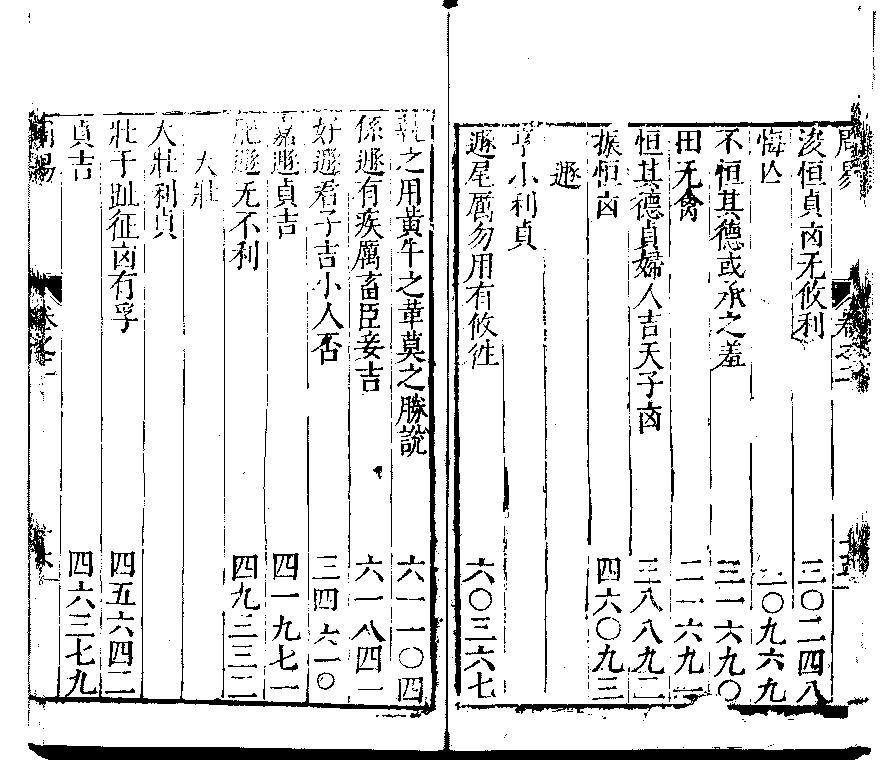 周易 卷之二
浚恒貞凶无攸利 三〇二四八
悔亾 三〇九六九
不恒其德或承之羞 三一六九〇
田无禽 三一六九一
恒其德貞婦人吉天子凶 三八八九二
振恒凶 四六〇九三
遯
亨小利貞
遯尾厲勿用有攸徃 六〇三六七
執之用黃牛之革莫之勝說 六一一〇四
係遯有疾厲畜臣妾吉 六一八四一
好遯君子吉小人否 三四六一〇
嘉遯貞吉 四一九七一
肥遯无不利 四九三三二
大壯
大壯利貞
壯于趾征凶有孚 四五六四二
貞吉 四六三七九
周易 卷之